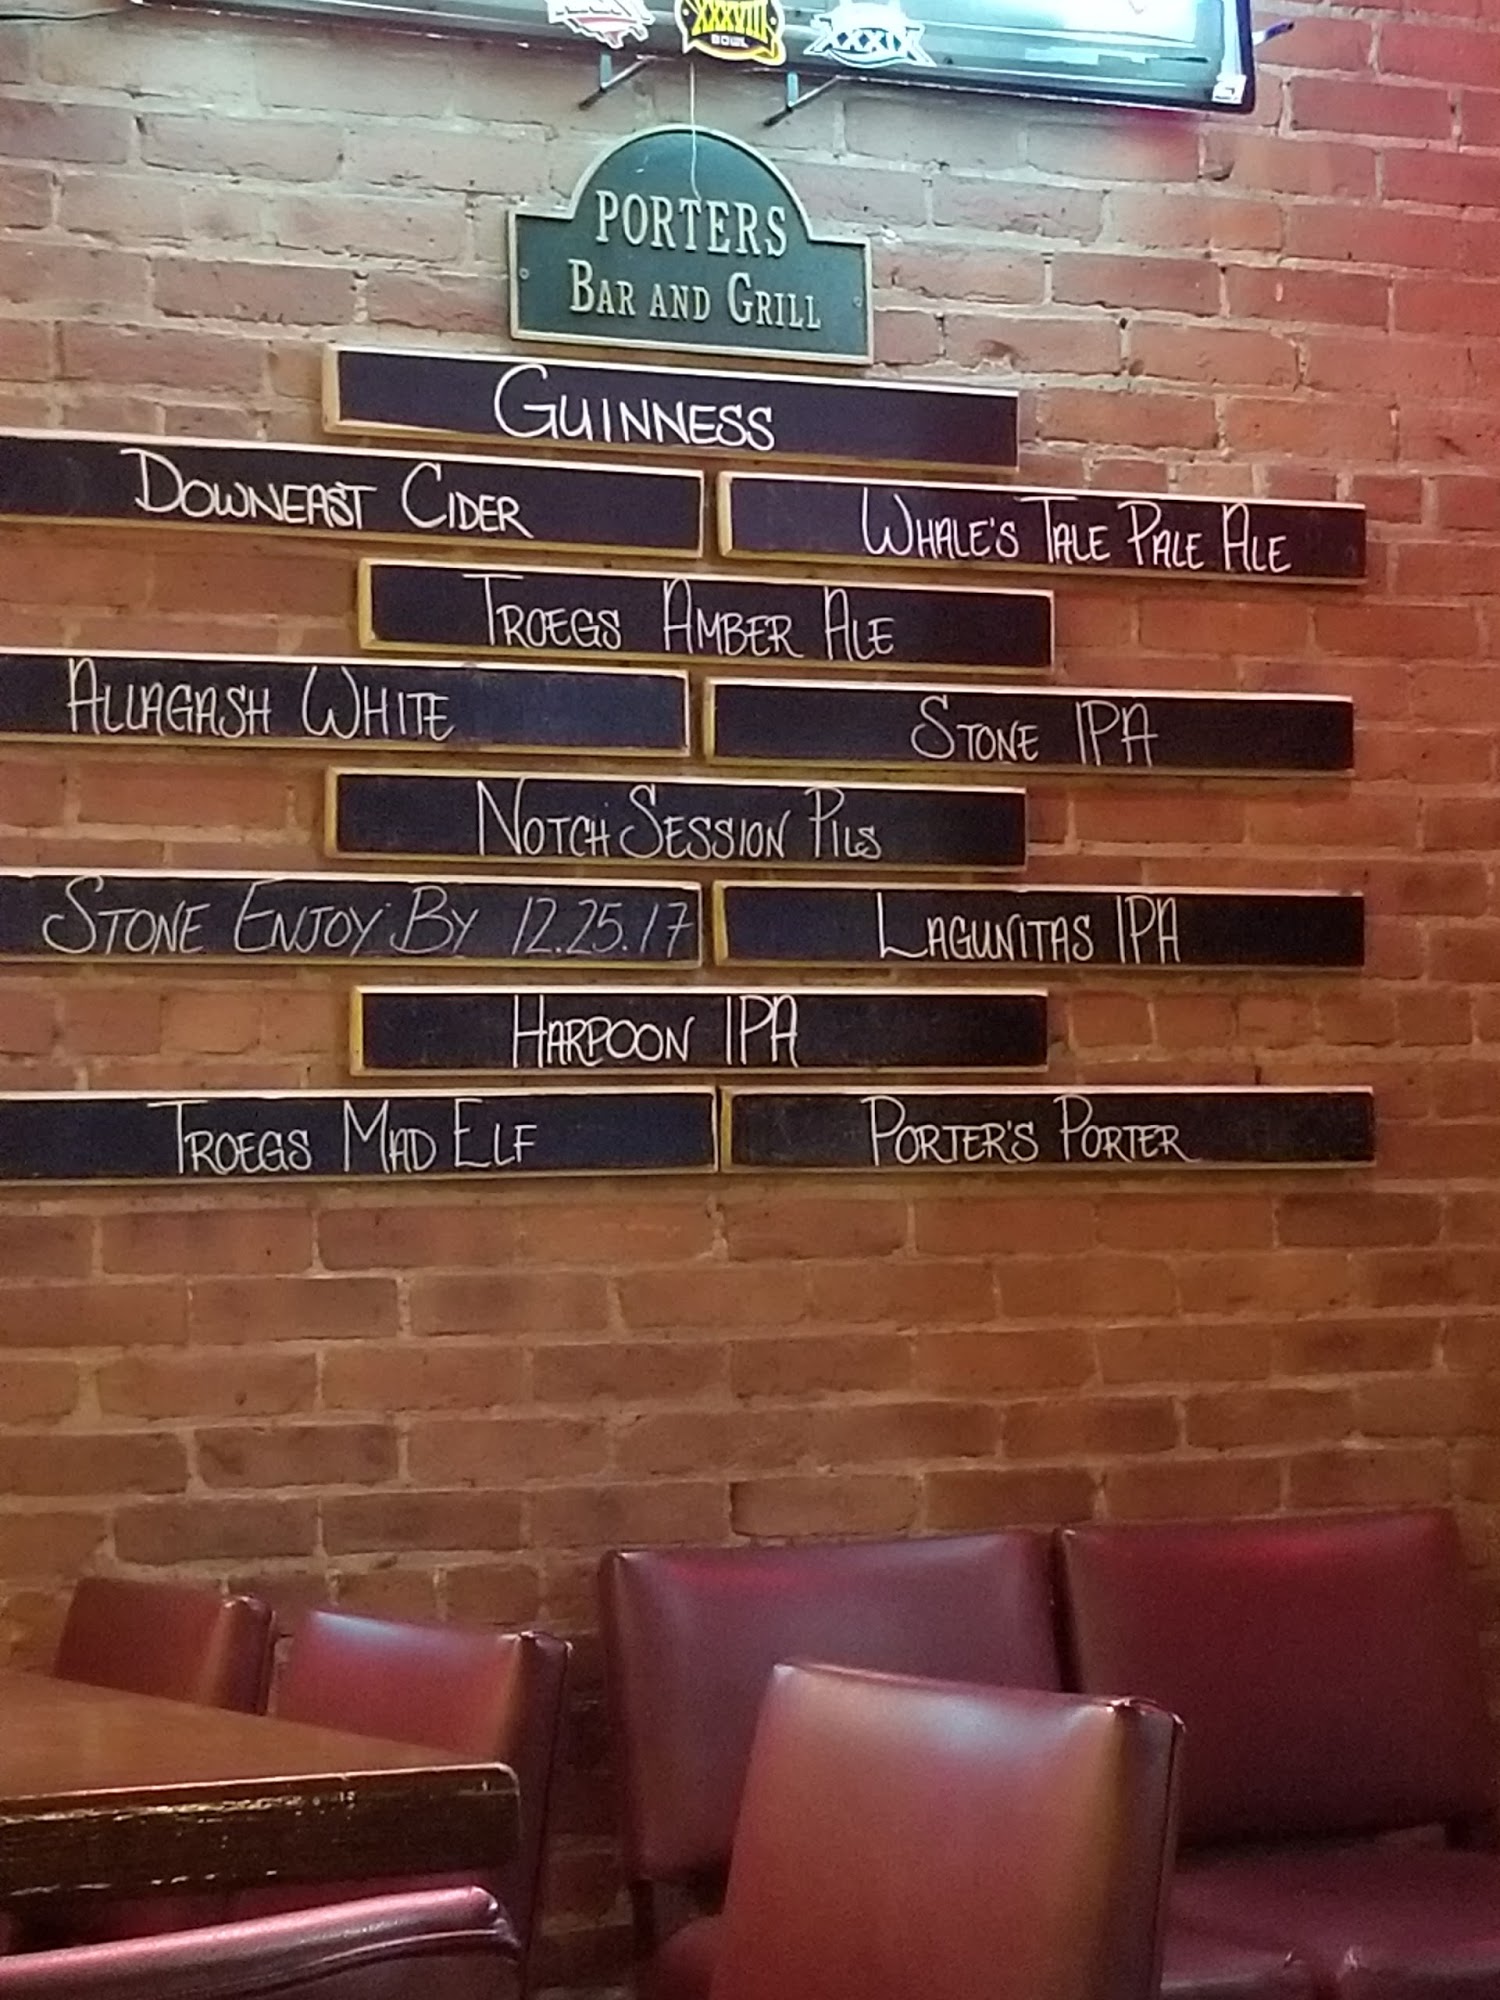 XXXVIII
BOWL
XXXIX
PORTERS
BAR AND GRILL
GUINNESS
DOWNEAST CIDER
WHALE'S TALE PALE ALE
TROEGS AMBER ALE
ALLAGASH WHITE
STONE IPA
NOTCH SESSION PILS
STONE ENJOY BY 12.25.17
LAGUNITAS IPA
HARPOON IPA
TROEGS MAD ELF
PORTER'S PORTER